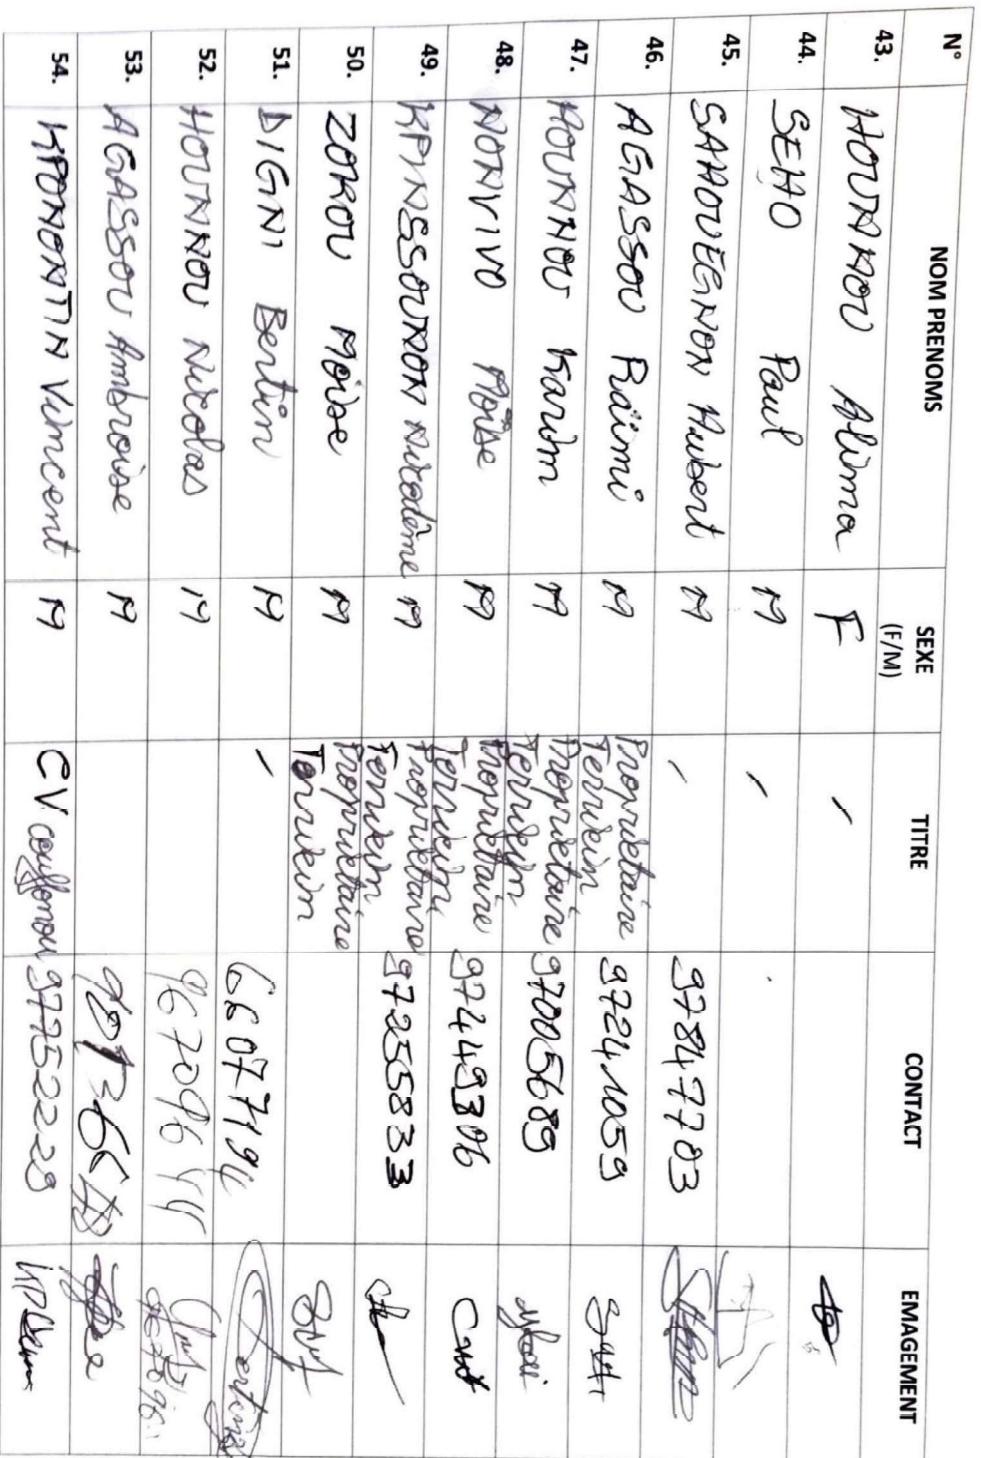 N° NOM PRENOMS SEXE (F/M) TITRE CONTACT EMAGEMENT
43. HOUNNOU Alima F -
44. SEHO Paul M -
45. SAHOUEGNON Hubert M - 97847703
46. AGASSOU Raïmi M Propriétaire Terrien 97241059
47. HOUNNOU Karim M Propriétaire Terrien 97005689
48. NONVIVO Moïse M Propriétaire Terrien 97449306
49. KPINSSOUNON Nicodème M Propriétaire Terrien 97255833
50. ZOKOU Moïse M Propriétaire Terrien
51. DIGNI Bertin M - 66077194
52. HOUNNOU Nicolas M 96709644
53. AGASSOU Ambroise M
54. KPONONTIN Vincent M CV 97752229